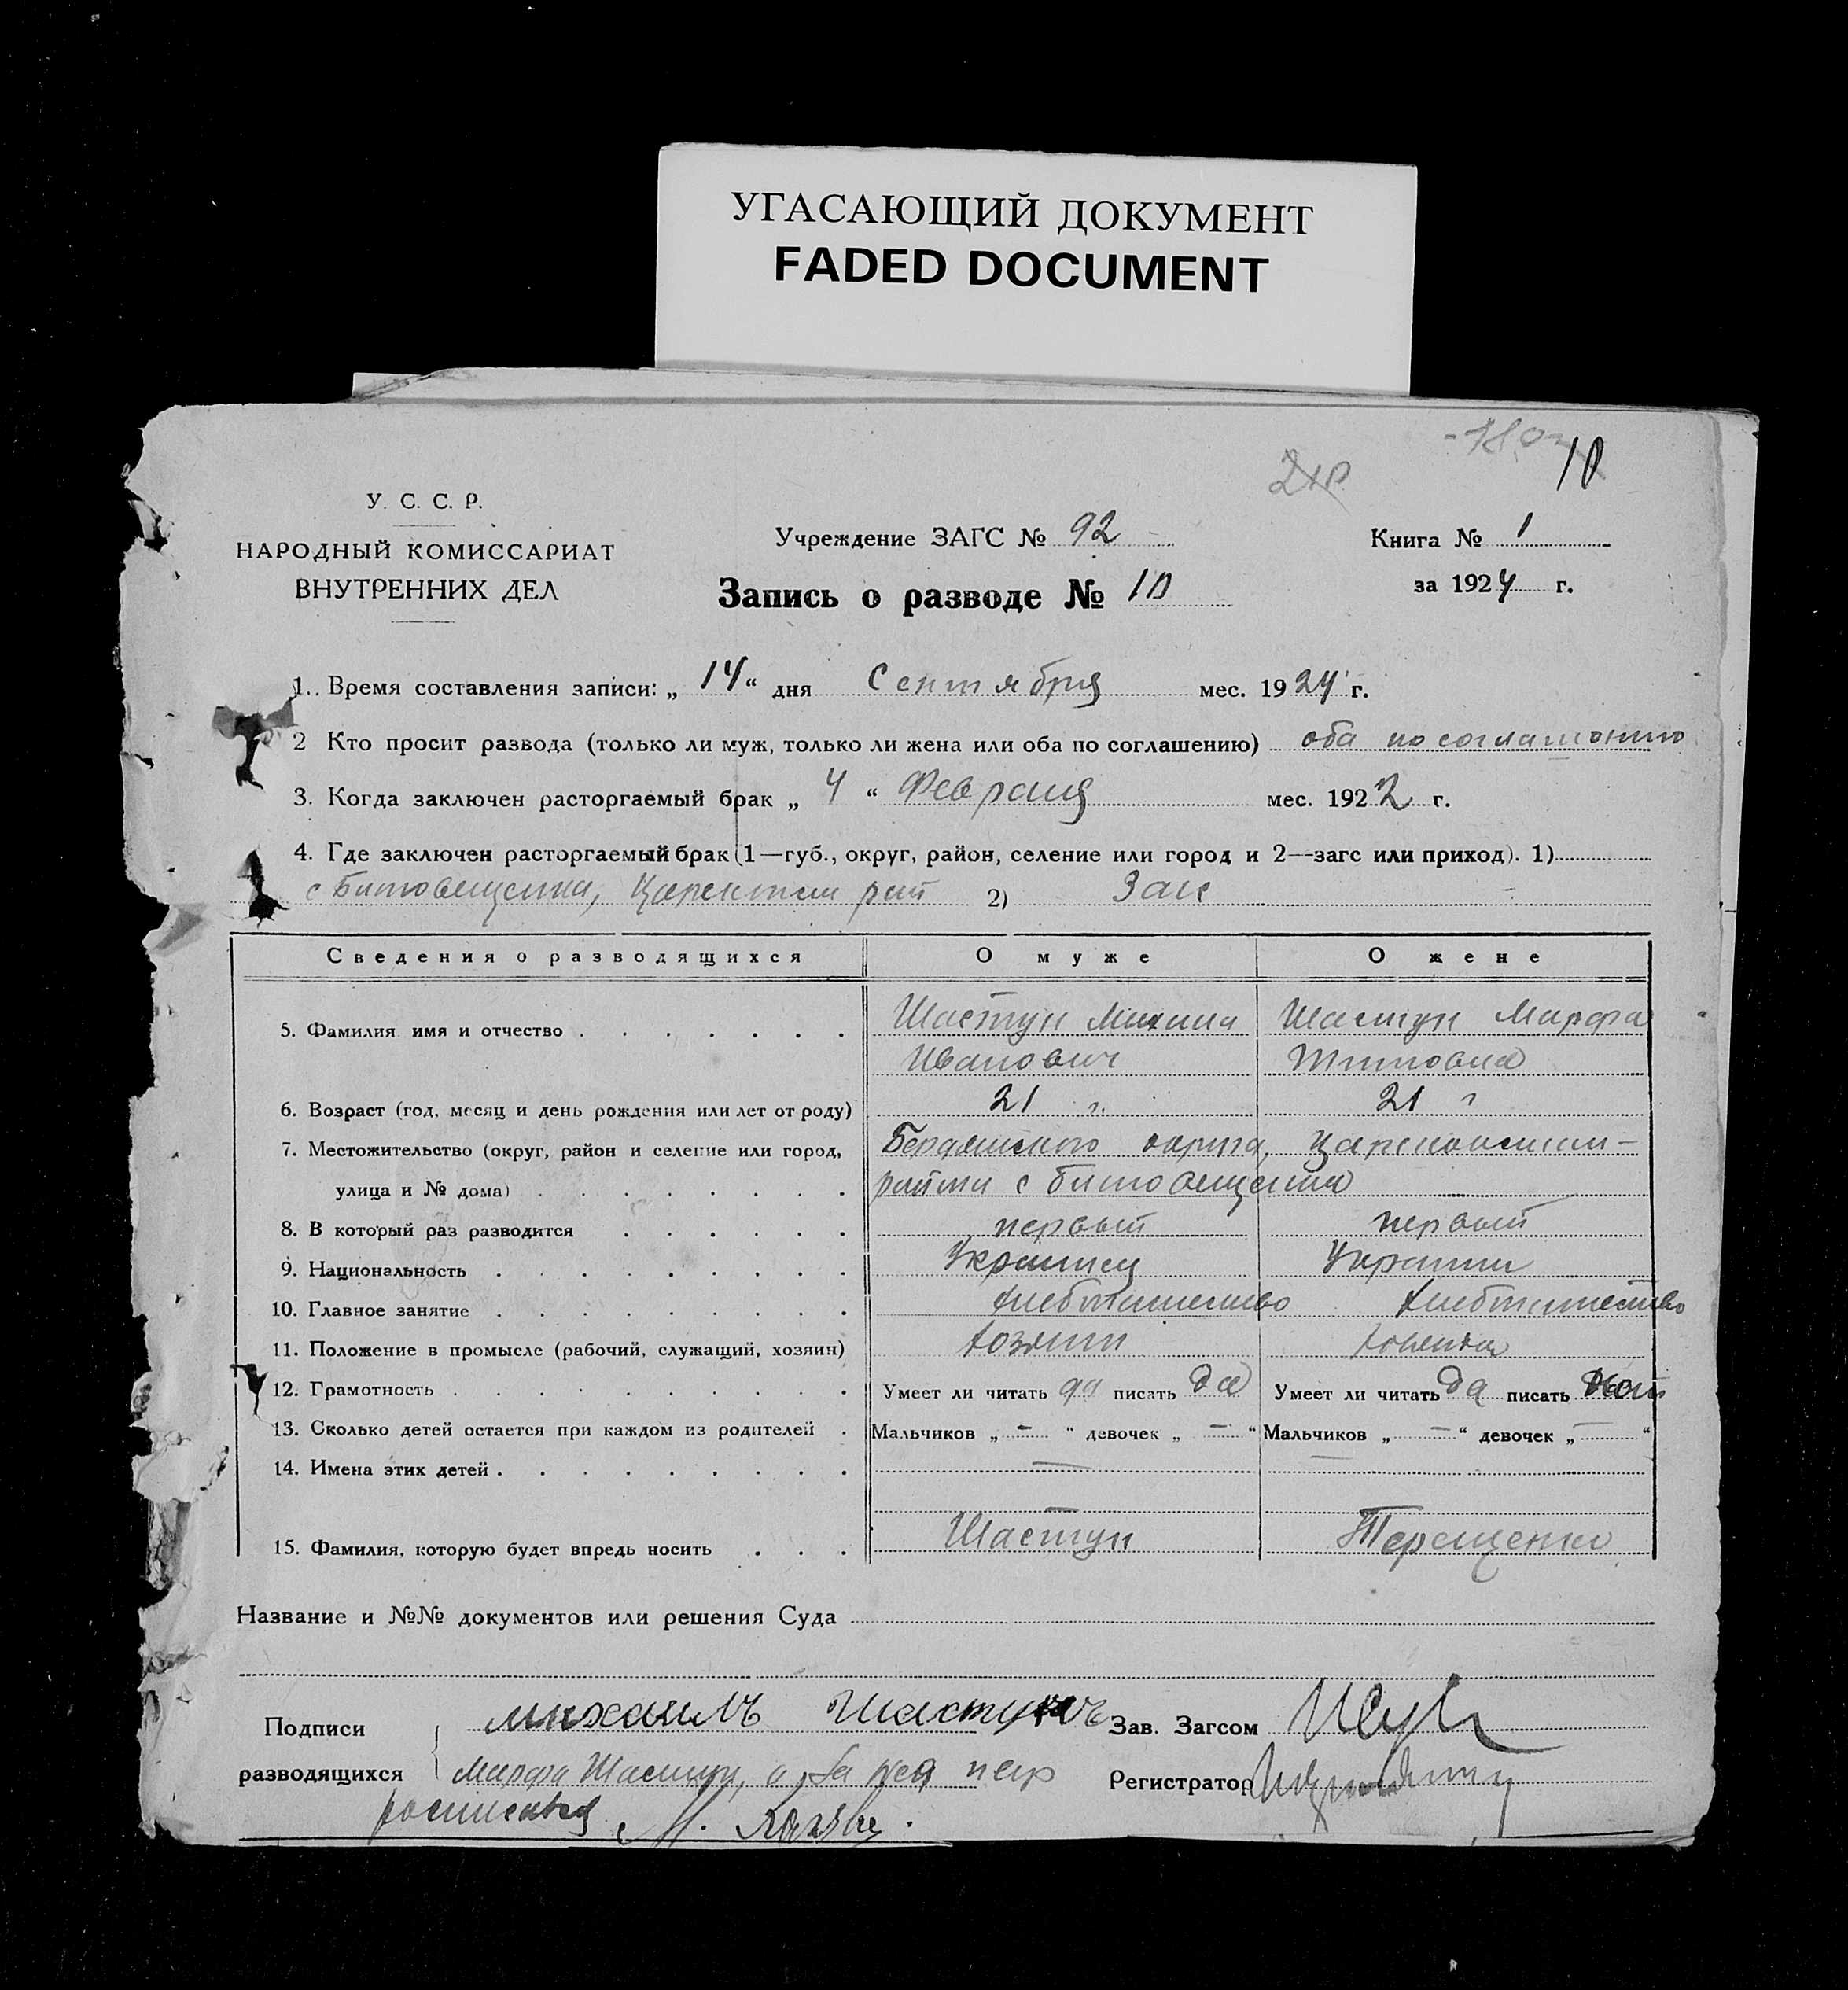 УГАСАЮЩИЙ ДОКУМЕНТ
FADED DOCUMENT
10
У. С. С. Р.
НАРОДНЫЙ КОМИССАРИАТ
ВНУТРЕННИХ ДЕЛ
Учреждение ЗАГС № 92
Запись о разводе № 10
Книга № 1
за 1924 г.
1. Время составления записи: „ 14 “ дня Сентября мес. 1924 г.
2 Кто просит развода (только ли муж, только ли жена или оба по соглашению) оба по соглашению
3. Когда заключен расторгаемый брак „ 4 “ Февраля мес. 1922 г.
4. Где заключен расторгаемый брак (1—губ., округ, район, селение или город и 2—загс или приход). 1)
с 2) Загс
Сведения о разводящихся О муже О жене
5. Фамилия имя и отчество Шастун Михаил Шастун Марфа
Иванович Титовна
6. Возраст (год, месяц и день рождения или лет от роду) 21 г. 21 г
7. Местожительство (округ, район и селение или город, Бердянского округа,
улица и № дома) с
8. В который раз разводится первый первый
9. Национальность Украинец
10. Главное занятие хлебопашество хлебопашество
11. Положение в промысле (рабочий, служащий, хозяин) хозяин
12. Грамотность Умеет ли читать да писать да Умеет ли читать да писать
13. Сколько детей остается при каждом из родителей Мальчиков „ — “ девочек „ — “ Мальчиков „ — “ девочек „ — “
14. Имена этих детей — —
—
15. Фамилия, которую будет впредь носить Шастун Терещенко
Название и №№ документов или решения Суда
Подписи Михаилъ Шастунъ Зав. Загсом
разводящихся Марфа Шастун, а за нея Регистратор
росписався М.